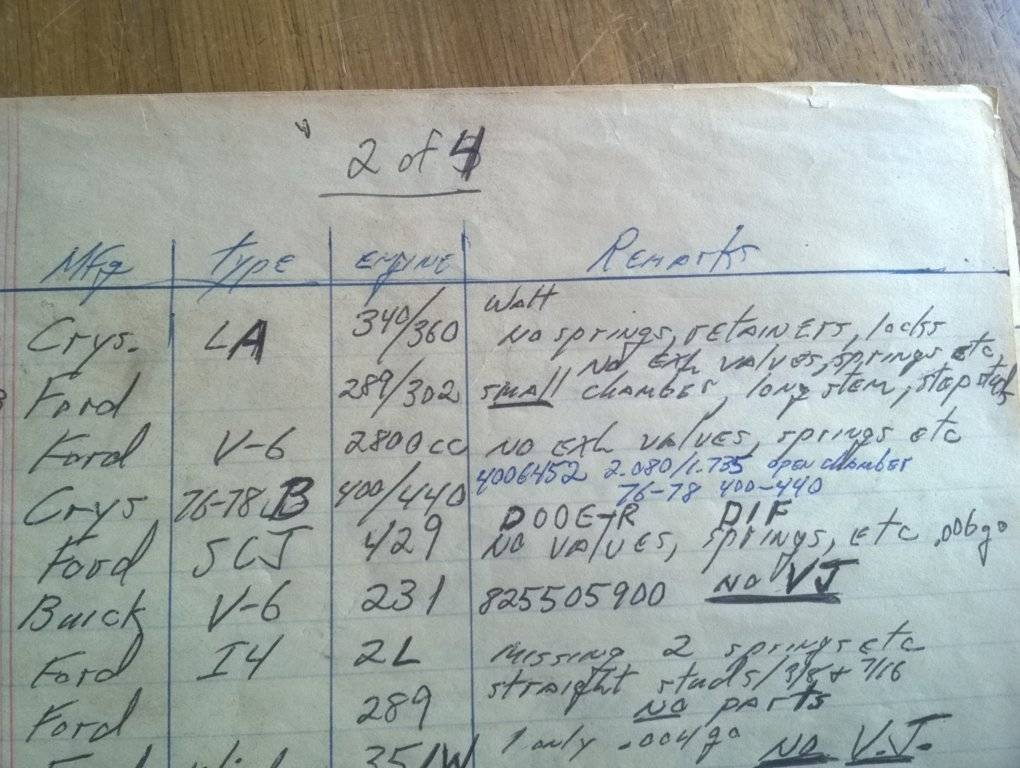 2 of 4
Mfg type engine Remarks
Walt
Crys. LA 340/360 No springs, retainers, locks
No exh valves, springs etc,
Ford 289/302 small chamber, long stem, step studs
Ford V-6 2800cc No exh valves, springs etc
4006452 2.080/1.735 open chamber
Crys 76-78 B 400/440 76-78 400-440
DOOE-R DIF
Ford SCJ 429 No valves, springs, etc .006go
Buick V-6 231 825505900 No VJ
Ford I4 2L missing 2 springs etc
straight studs/3/8 + 7/16
Ford 289 No parts
1 only .004go No V.J.
351W